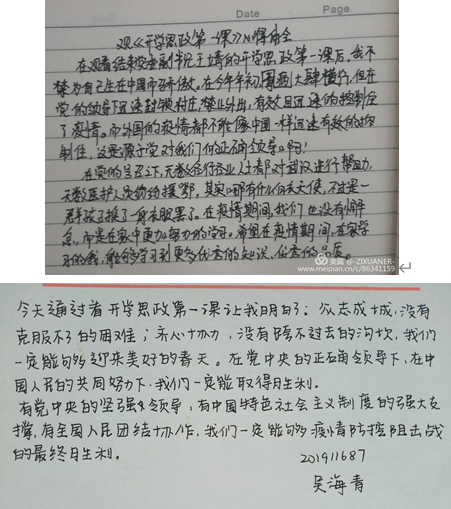 Date
Page
观《开学思政第一课》心得体会
在观看结束校党副书记王婧的开学思政第一课后，我不
禁为自己生在中国而骄傲。在今年年初疫情大肆横行，但在
党的领导下迅速封锁村庄，禁止外出，有效且迅速的控制住
了疫情。而外国的疫情都不能像中国一样迅速有效的控
制住，这是源于党对我们的正确领导。啊！
在党的号召下，无数各行各业人士都对武汉进行帮助，
无数医护人员药药援鄂，其实哪有什么白衣天使，不过是一
群孩子换了一身衣服罢了。在疫情期间，我们也没有懈
怠，而是在家中更加努力的学习。希望在疫情期间，在家学
习的我，能够学习到更多优秀的知识，优秀的品质。
美篇 @-ZIXUANER-
www.meipian.cn/c/86341159
今天通过着开学思政第一课让我明白了：众志成城，没有
克服不了的困难；齐心协力，没有跨不过去的沟坎，我们
一定能够迎来美好的春天。在党中央的正确领导下，在中
国人民的共同努力下，我们一定能取得胜利。
有党中央的坚强领导，有中国特色社会主义制度的强大支
撑，有全国人民团结协作，我们一定能够疫情防控阻击战
的最终胜利。
201911687
吴海青